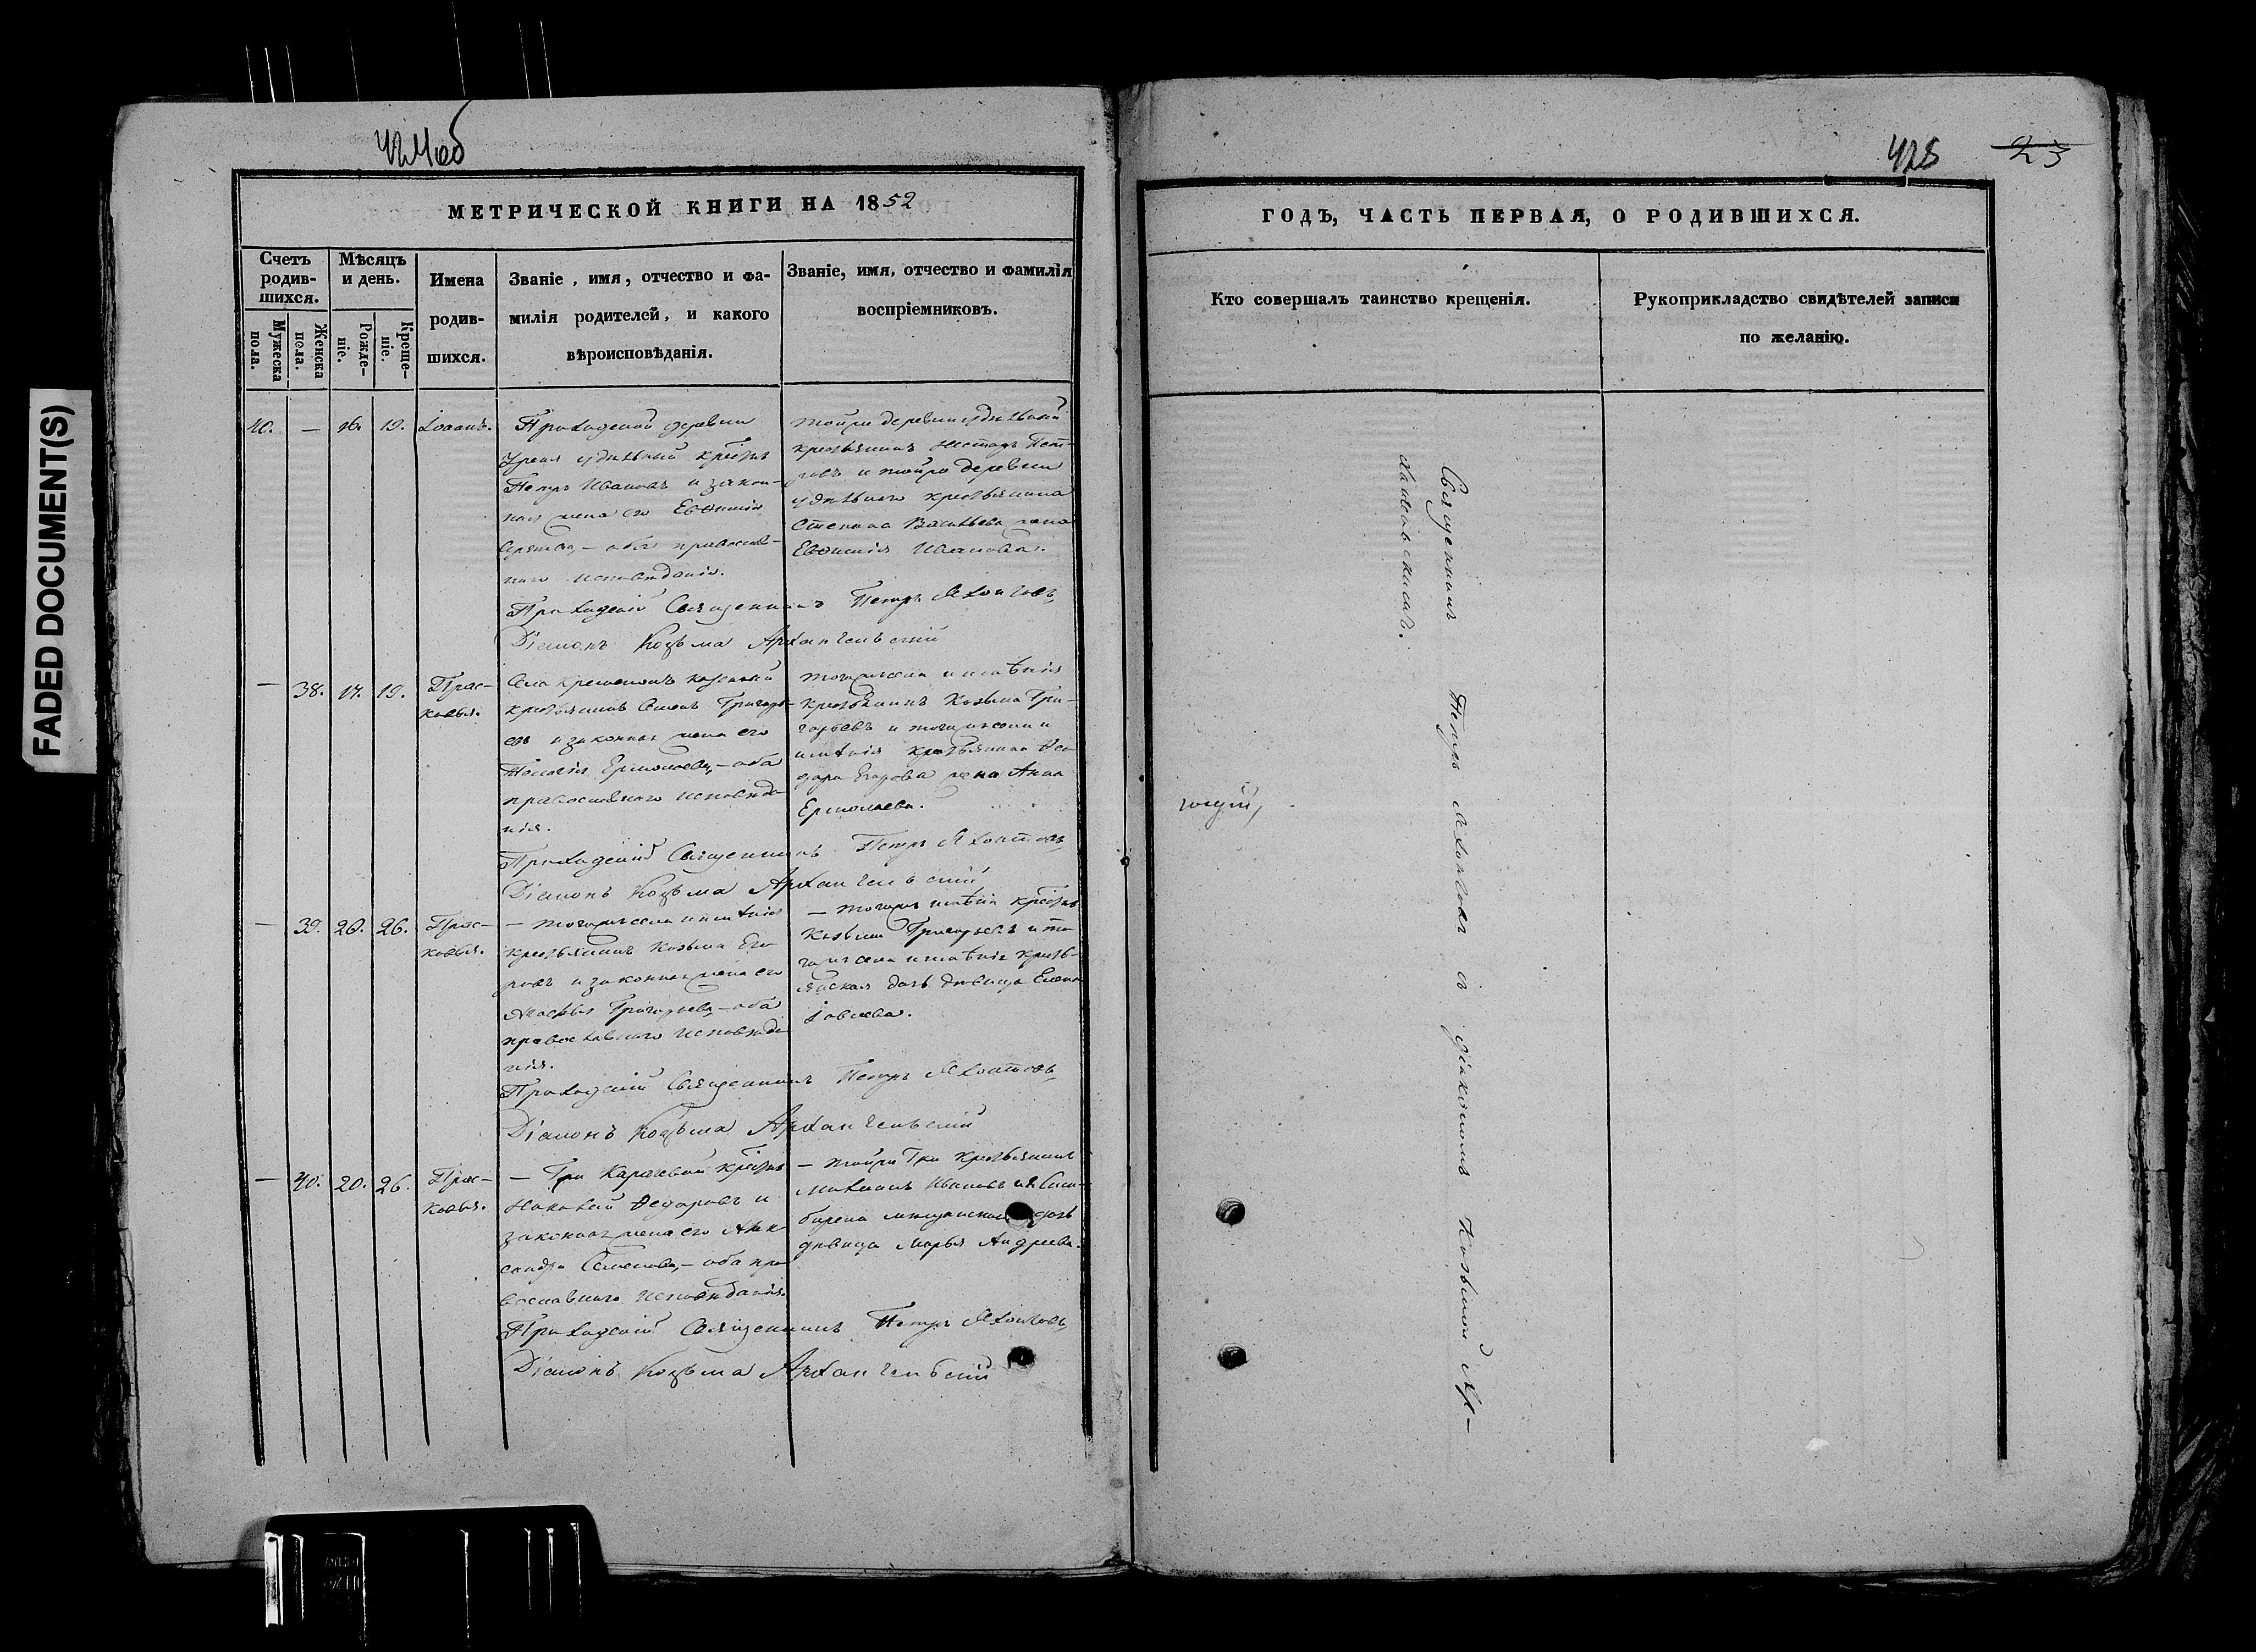 FADED DOCUMENT(S)
424об
МЕТРИЧЕСКОЙ КНИГИ НА 1852
Счетъ родившихся.
Мужеска пола.
Женска пола.
Мѣсяцъ и день.
Рожденіе.
Крещеніе.
Имена родившихся.
Званіе, имя, отчество и фамилія родителей, и какого вѣроисповѣданія.
Званіе, имя, отчество и фамилія воспріемниковъ.
40. — 16. 19. Іоаннъ.
Приходской деревни
удѣльный
Петръ Ивановъ и закон-
ная жена его Евѳимія
оба православ-
наго исповѣданія.
тойже деревни удѣльный
крестьянинъ Несторъ Пет-
ровъ и тойже деревни
удѣльнаго крестьянина
Степана Васильева жена
Евѳимія Иванова.
Приходскій Священникъ Петръ Яхонтовъ,
Діаконъ Козьма Архангельскій
— 38. 17. 19. Прас-
ковья.
Села казенный
крестьянинъ Семенъ Григорь-
евъ и законная жена его
Ермолаева, — оба
православнаго исповѣда-
нія.
тогоже села и имѣнія
крестьянинъ Козьма Гри-
горьевъ и тогоже села и
имѣнія крестьянина Ѳео-
дора Егорова жена Анна
Ермолаева.
Приходскій Священникъ Петръ Яхонтовъ,
Діаконъ Козьма Архангельскій
— 39. 20. 26. Прас-
ковья.
— тогоже села и имѣнія
крестьянинъ Козьма Его-
ровъ и законная жена его
Григорьева, — оба
православнаго исповѣда-
нія.
— тогоже имѣнія
Козьма Григорьевъ и то-
гоже села и имѣнія кресть-
янская дочь дѣвица Елена
Приходскій Священникъ Петръ Яхонтовъ,
Діаконъ Козьма Архангельскій
— 40. 20. 26. Прас-
ковья.
Ѳедоровъ и
законная жена его Алек-
сандра Семенова, — оба пра-
вославнаго исповѣданія.
крестьянинъ
Ивановъ
мещанская дочь
дѣвица Марья Андреева.
Приходскій Священникъ Петръ Яхонтовъ,
Діаконъ Козьма Архангельскій
425 23
ГОДЪ, ЧАСТЬ ПЕРВАЯ, О РОДИВШИХСЯ.
Кто совершалъ таинство крещенія.
Рукоприкладство свидѣтелей записи по желанію.
Священникъ Петръ Яхонтовъ съ діакономъ Козьмою Ар-
хангельскимъ.